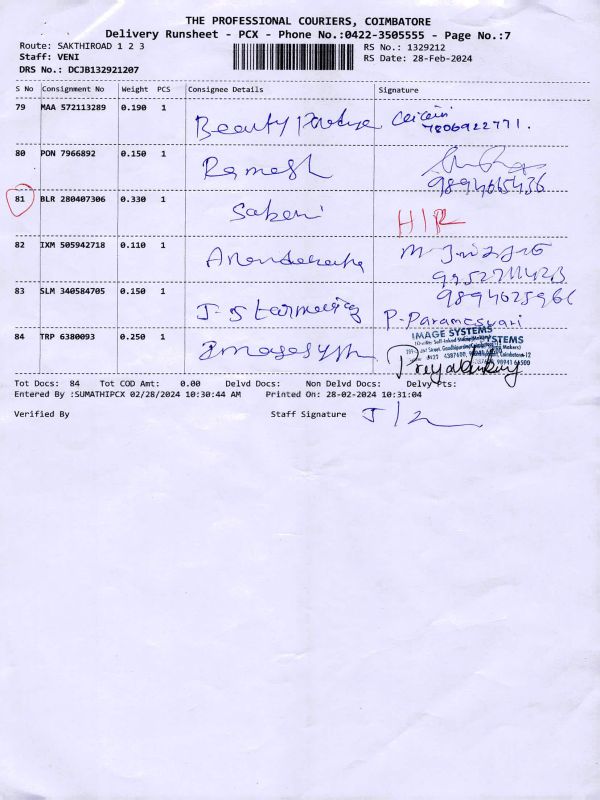 THE PROFESSIONAL COURIERS, COIMBATORE
Delivery Runsheet - PCX - Phone No.:0422-3505555 - Page No.:7
Route: SAKTHIROAD 1 2 3
RS No.: 1329212
Staff: VENI
RS Date: 28-Feb-2024
DRS No.: DCJB132921207
S No Consignment No Weight PCS Consignee Details Signature
79 MAA 572113289 0.190 1 Beauty
7806922771.
80 PON 7966892 0.150 1 Ramesh
9894665436
81 BLR 280407306 0.330 1 Sabari
82 IXM 505942718 0.110 1
83 SLM 340584705 0.150 1
P. Parameswari
84 TRP 6380093 0.250 1
IMAGE SYSTEMS
Tot Docs: 84 Tot COD Amt: 0.00 Delvd Docs: Non Delvd Docs: Delvy Pts:
Entered By :SUMATHIPCX 02/28/2024 10:30:44 AM Printed On: 28-02-2024 10:31:04
Verified By Staff Signature